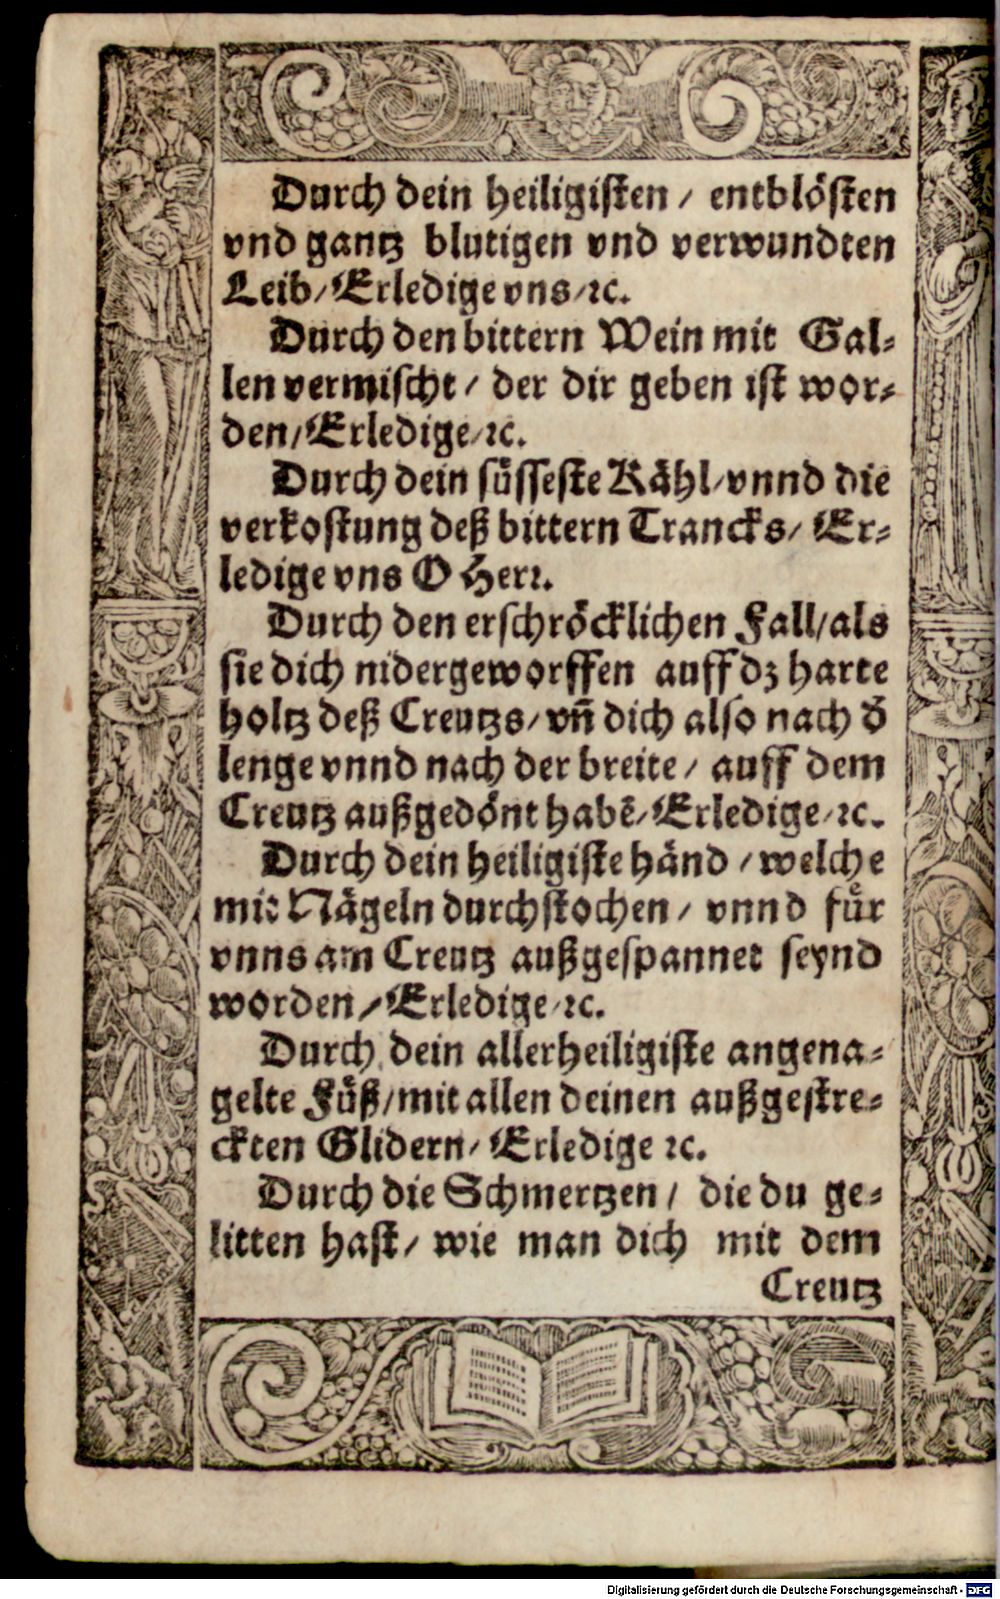 Durch dein heiligisten / entblösten
vnd gantz blutigen vnd verwundten
Leib / Erledige vns / ꝛc.
Durch den bittern Wein mit Gal-
len vermischt / der dir geben ist wor-
den / Erledige / ꝛc.
Durch dein süsseste Kähl / vnnd die
verkostung deß bittern Trancks / Er-
ledige vns O Herꝛ.
Durch den erschröcklichen Fall / als
sie dich nidergeworffen auff dz harte
holtz deß Creutzs / vn̄ dich also nach d̕
lenge vnnd nach der breite / auff dem
Creutz außgedönt habē / Erledige / ꝛc.
Durch dein heiligiste händ / welche
mit Nägeln durchstochen / vnnd für
vnns am Creutz außgespannet seynd
worden / Erledige / ꝛc.
Durch dein allerheiligiste angena-
gelte Füß / mit allen deinen außgestre-
ckten Glidern / Erledige ꝛc.
Durch die Schmertzen / die du ge-
litten hast / wie man dich mit dem
Creutz
Digitalisierung gefördert durch die Deutsche Forschungsgemeinschaft - DFG